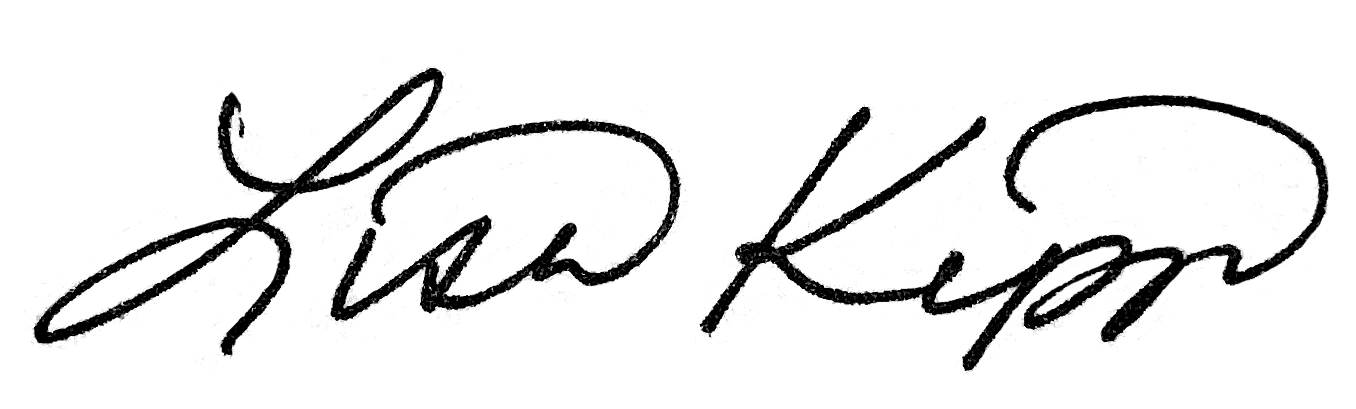 Lisa Kipp